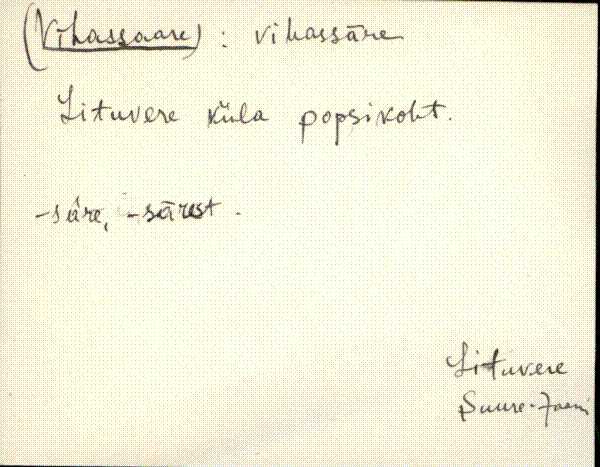 (Vihassaare) : vihassāre
Lituvere küla popsikoht.
-sāre, -sārest.
Lituvere
Suure-Jaani